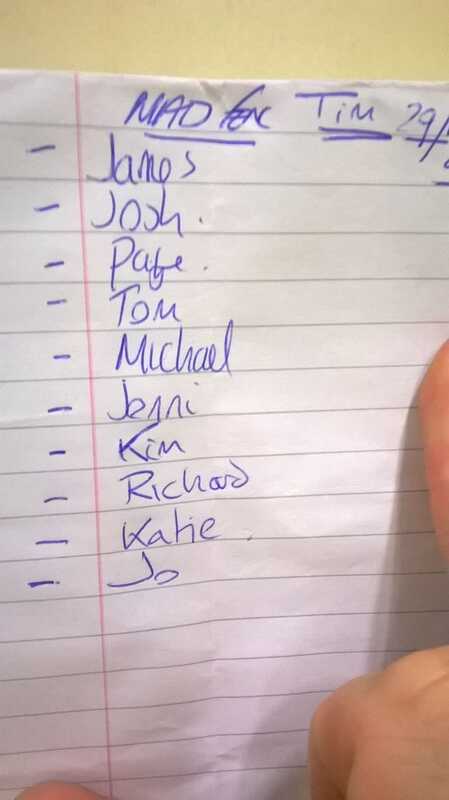 MAD for Tim 29/
- James
- Josh.
- Page.
- Tom
- Michael
- Jenni
- Kim
- Richard
- Katie.
- Jo